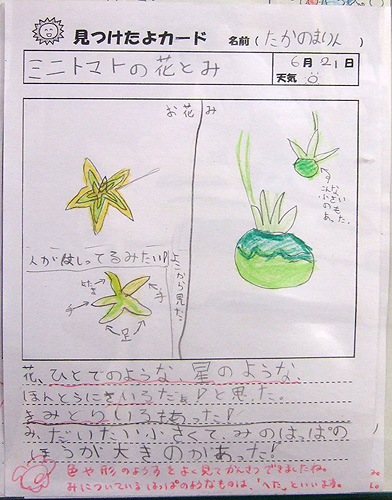 見つけたよカード
名前(たかのまりん)
ミニトマトの花とみ
6月21日
天気
お花
み
こんな
小さい
のもあ
った。
人がはしってるみたい!
よこから見た。
あたま
手
手
足
花、ひとでのような、星のような、
ほんとうにきいろだぁ!と思った。
きみどりいろもあった!
み、だいたい小さくて、みのはっぱの
ほうが大きのがあった!
色や形のようすをよく見てかんさつできましたね。
みについているはっぱのようなものは、「へた」といいます。